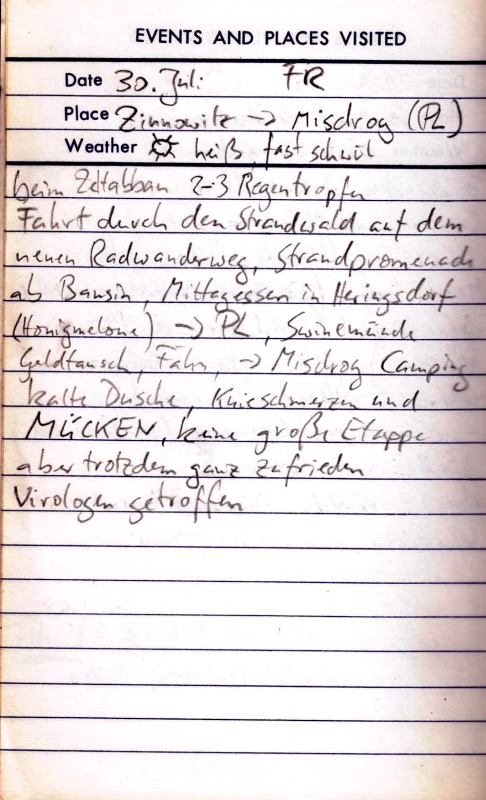 EVENTS AND PLACES VISITED
Date 30. Juli FR
Place Zinnowitz -> Misdroy (PL)
Weather heiß, fast schwül
beim Zeltabbau 2-3 Regentropfen
Fahrt durch den Strandwald auf dem
neuen Radwanderweg, Strandpromenade
ab Bansin, Mittagessen in Heringsdorf
(Honigmelone) -> PL, Swinemünde
Geldtausch, Fähre, -> Misdroy Camping
kalte Dusche, Knieschmerzen und
MÜCKEN, keine große Etappe
aber trotzdem ganz zufrieden
Virologen getroffen